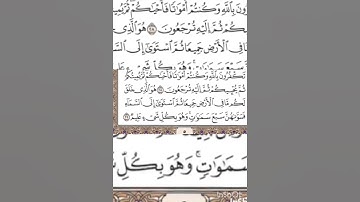 ونَ بِاللَّهِ وَكُنتُمْ أَمْوَاتًا فَأَحْيَاكُمْ ثُمَّ يُمِيتُ
كُمْ ثُمَّ إِلَيْهِ تُرْجَعُونَ ۝٢٨ هُوَ الَّذِي
فِي الْأَرْضِ جَمِيعًا ثُمَّ اسْتَوَىٰ إِلَى السَّ
سَبْعَ سَمَاوَاتٍ ۚ وَهُوَ بِكُلِّ شَيْءٍ
تَكْفُرُونَ بِاللَّهِ وَكُنتُمْ أَمْوَاتًا فَأَحْيَاكُمْ ثُمَّ يُمِيتُكُمْ
ثُمَّ يُحْيِيكُمْ ثُمَّ إِلَيْهِ تُرْجَعُونَ ۝٢٨ هُوَ الَّذِي خَلَقَ
لَكُم مَّا فِي الْأَرْضِ جَمِيعًا ثُمَّ اسْتَوَىٰ إِلَى السَّمَاءِ
فَسَوَّاهُنَّ سَبْعَ سَمَاوَاتٍ ۚ وَهُوَ بِكُلِّ شَيْءٍ عَلِيمٌ ۝٢٩
سَمَاوَاتٍ ۚ وَهُوَ بِكُلِّ